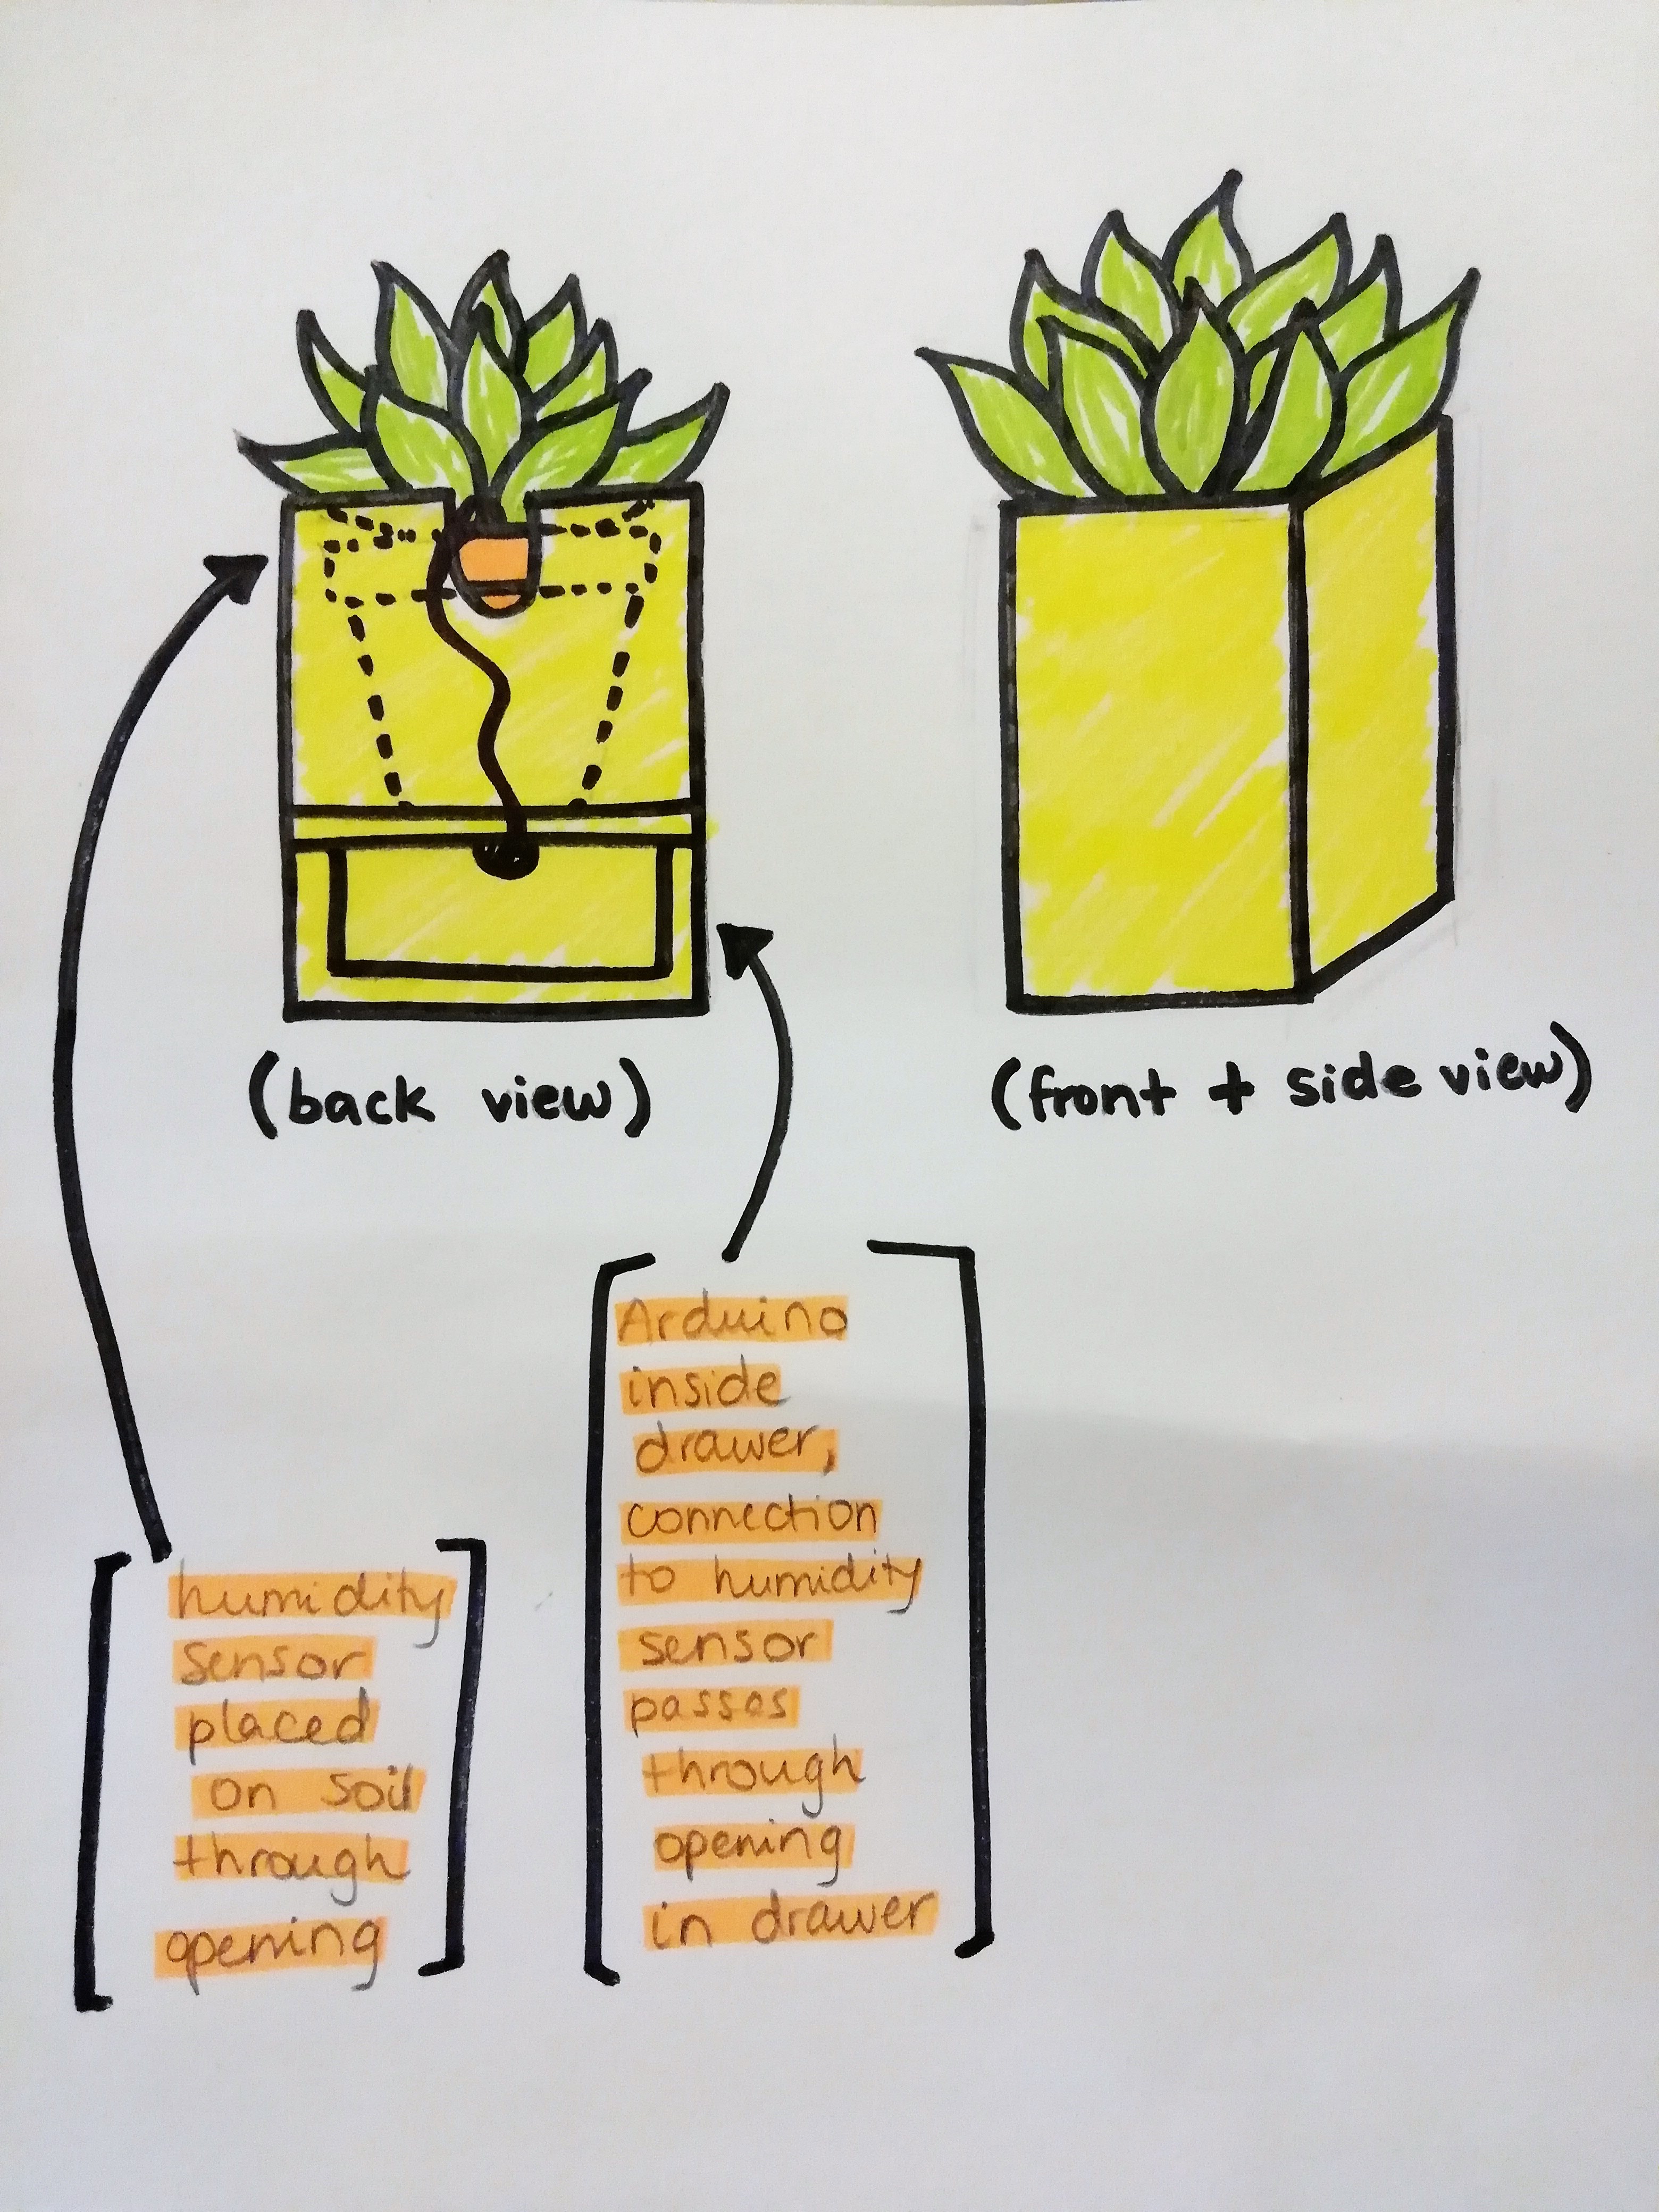 (back view)
(front + side view)
humidity
sensor
placed
on soil
through
opening
Arduino
inside
drawer,
connection
to humidity
sensor
passes
through
opening
in drawer